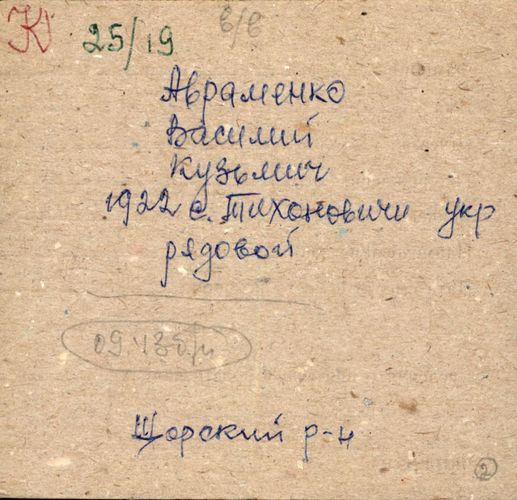 К
25/19 в/в
Авраменко
Василий
Кузьмич
1922 с. Тихоновичи укр
рядовой
09.43 б/и
Щорский р-н
2